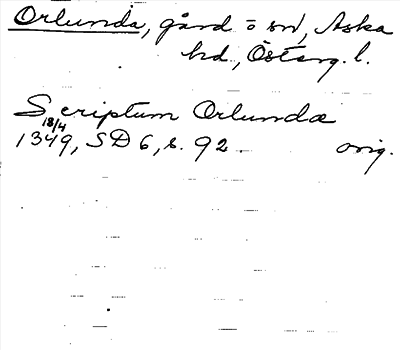 Orlunda, gård o sn, Aska
hd, Österg. l.
Scriptum Orlunda
18/4
1349, SD 6, s. 92 orig.